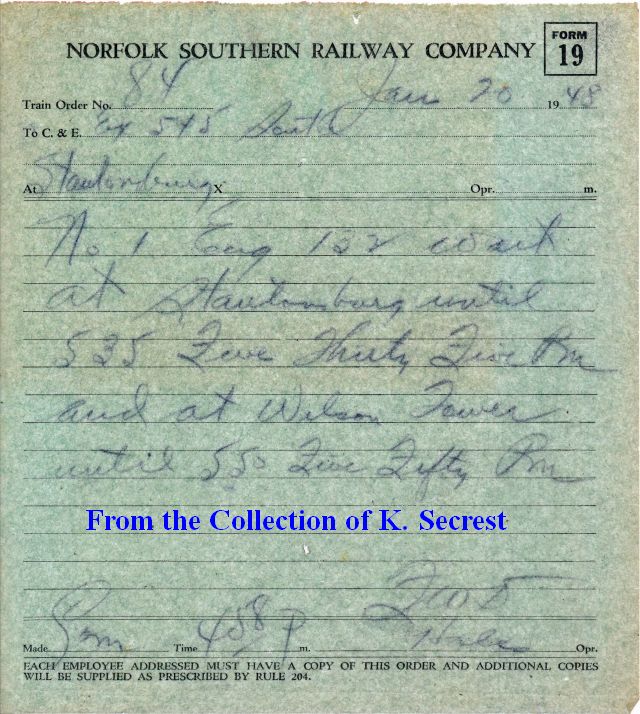 NORFOLK SOUTHERN RAILWAY COMPANY
FORM 19
Train Order No. 84 Jan 20 1948
To C. & E. Ex 545 South
At Stantonsburg X Opr. m.
No 1 Eng 132 wait
at Stantonsburg until
535 Five Thirty Five Pm
and at Wilson Tower
until 550 Five Fifty Pm
From the Collection of K. Secrest
Made Com Time 458 P m. Opr.
EACH EMPLOYEE ADDRESSED MUST HAVE A COPY OF THIS ORDER AND ADDITIONAL COPIES
WILL BE SUPPLIED AS PRESCRIBED BY RULE 204.